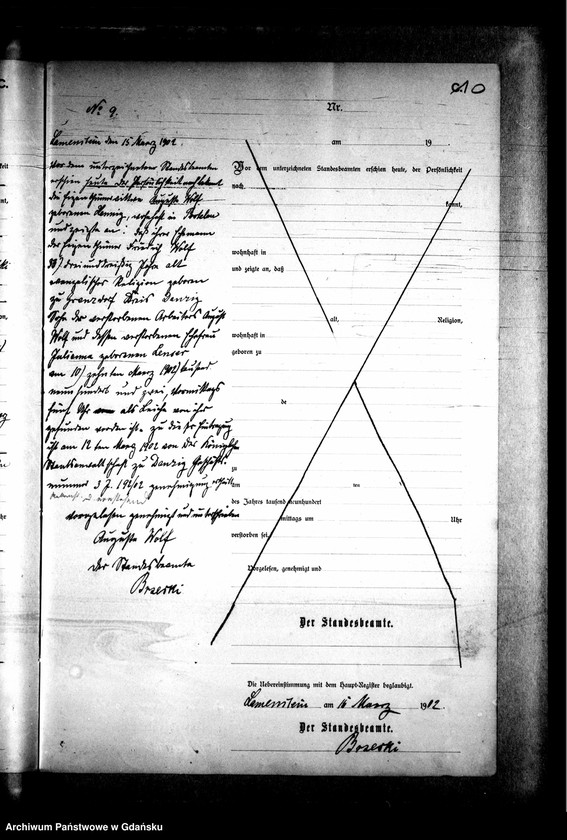 № 9.
Lamenstein den 15 März 1902.
Vor dem unterzeichneten Standesbeamten
erschien heute der Persönlichkeit nach bekannt
die Eigenthümerwittwe Auguste Wolf
geborenen Hennig, wohnhaft in
und zeigte an: daß ihre Ehemann
der Eigenthümer Friedrich Wolf
33/ drei und dreißig Jahre alt
evangelischer Religion geboren
zu Kreis Danzig
Sohn der verstorbenen Arbeiters August
Wolf und dessen verstorbenen Ehefrau
Julianna geborenen
am 10/ zehnten März 1902/ tausend
neunhundert und zwei, Vormittags
fünf Uhr als Leiche von ihr
gefunden worden ist. zu dieser Eintragung
ist am 12 ten März 1902 von der Königlichen
Staatsanwaltschaft zu Danzig Geschäfts-
nummer 3 J. 192/02 genehmigung ertheilt
Vorgelesen genehmigt und unterschrieben
Auguste Wolf
Der Standesbeamte
Brzeski
10
Nr.
am 19
Vor dem unterzeichneten Standesbeamten erschien heute, der Persönlichkeit
nach
kannt,
wohnhaft in
und zeigte an, daß
alt, Religion,
wohnhaft in
geboren zu
de
zu
am ten
des Jahres tausend neunhundert
mittags um Uhr
verstorben sei.
Vorgelesen, genehmigt und
Der Standesbeamte.
Die Uebereinstimmung mit dem Haupt-Register beglaubigt.
Lamenstein am 15 März 1902.
Der Standesbeamte.
Brzeski
Archiwum Państwowe w Gdańsku